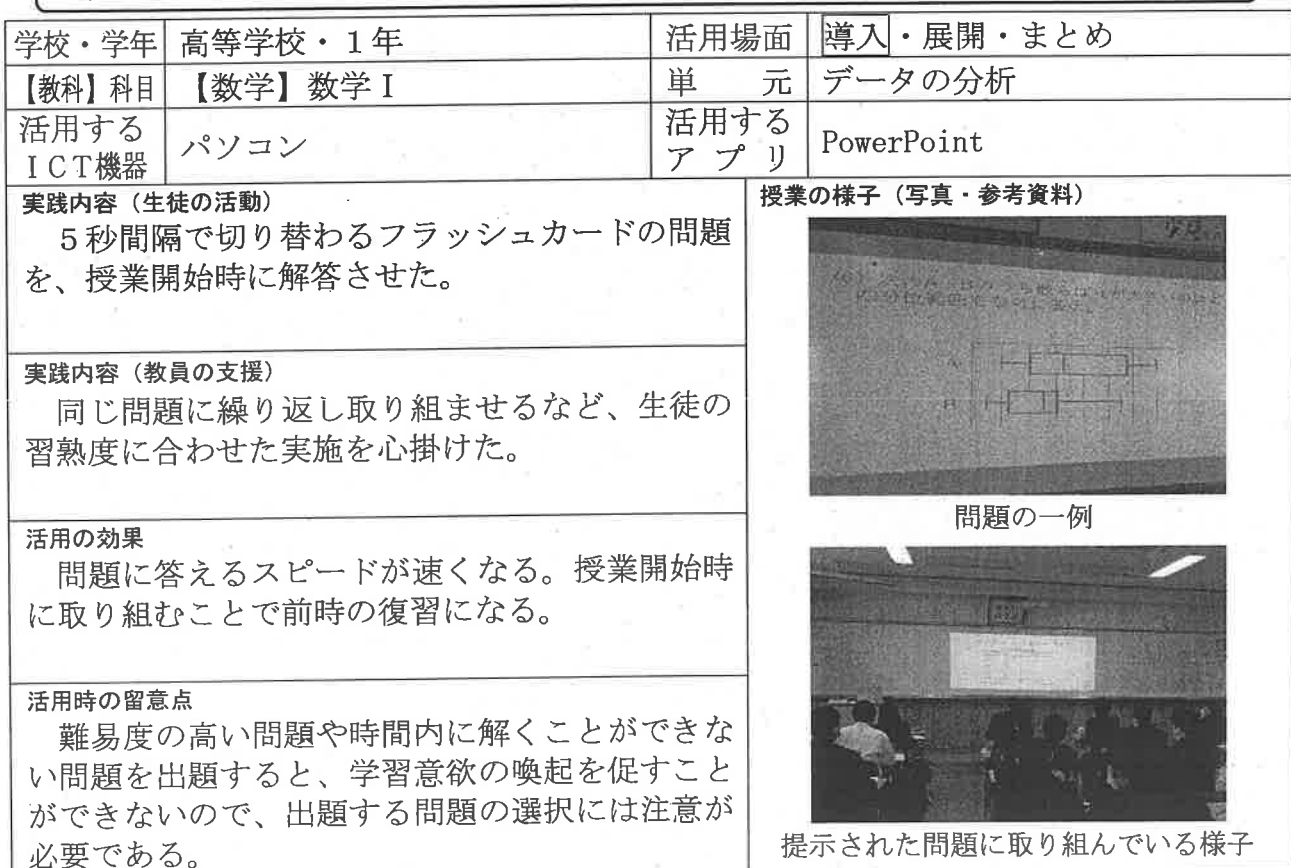 学校・学年 高等学校・１年 活用場面 導入・展開・まとめ
【教科】科目 【数学】数学Ⅰ 単　元 データの分析
活用する
ＩＣＴ機器
パソコン
活用する
アプリ
PowerPoint
実践内容（生徒の活動）
５秒間隔で切り替わるフラッシュカードの問題
を、授業開始時に解答させた。
実践内容（教員の支援）
同じ問題に繰り返し取り組ませるなど、生徒の
習熟度に合わせた実施を心掛けた。
活用の効果
問題に答えるスピードが速くなる。授業開始時
に取り組むことで前時の復習になる。
活用時の留意点
難易度の高い問題や時間内に解くことができな
い問題を出題すると、学習意欲の喚起を促すこと
ができないので、出題する問題の選択には注意が
必要である。
授業の様子（写真・参考資料）
問題の一例
提示された問題に取り組んでいる様子